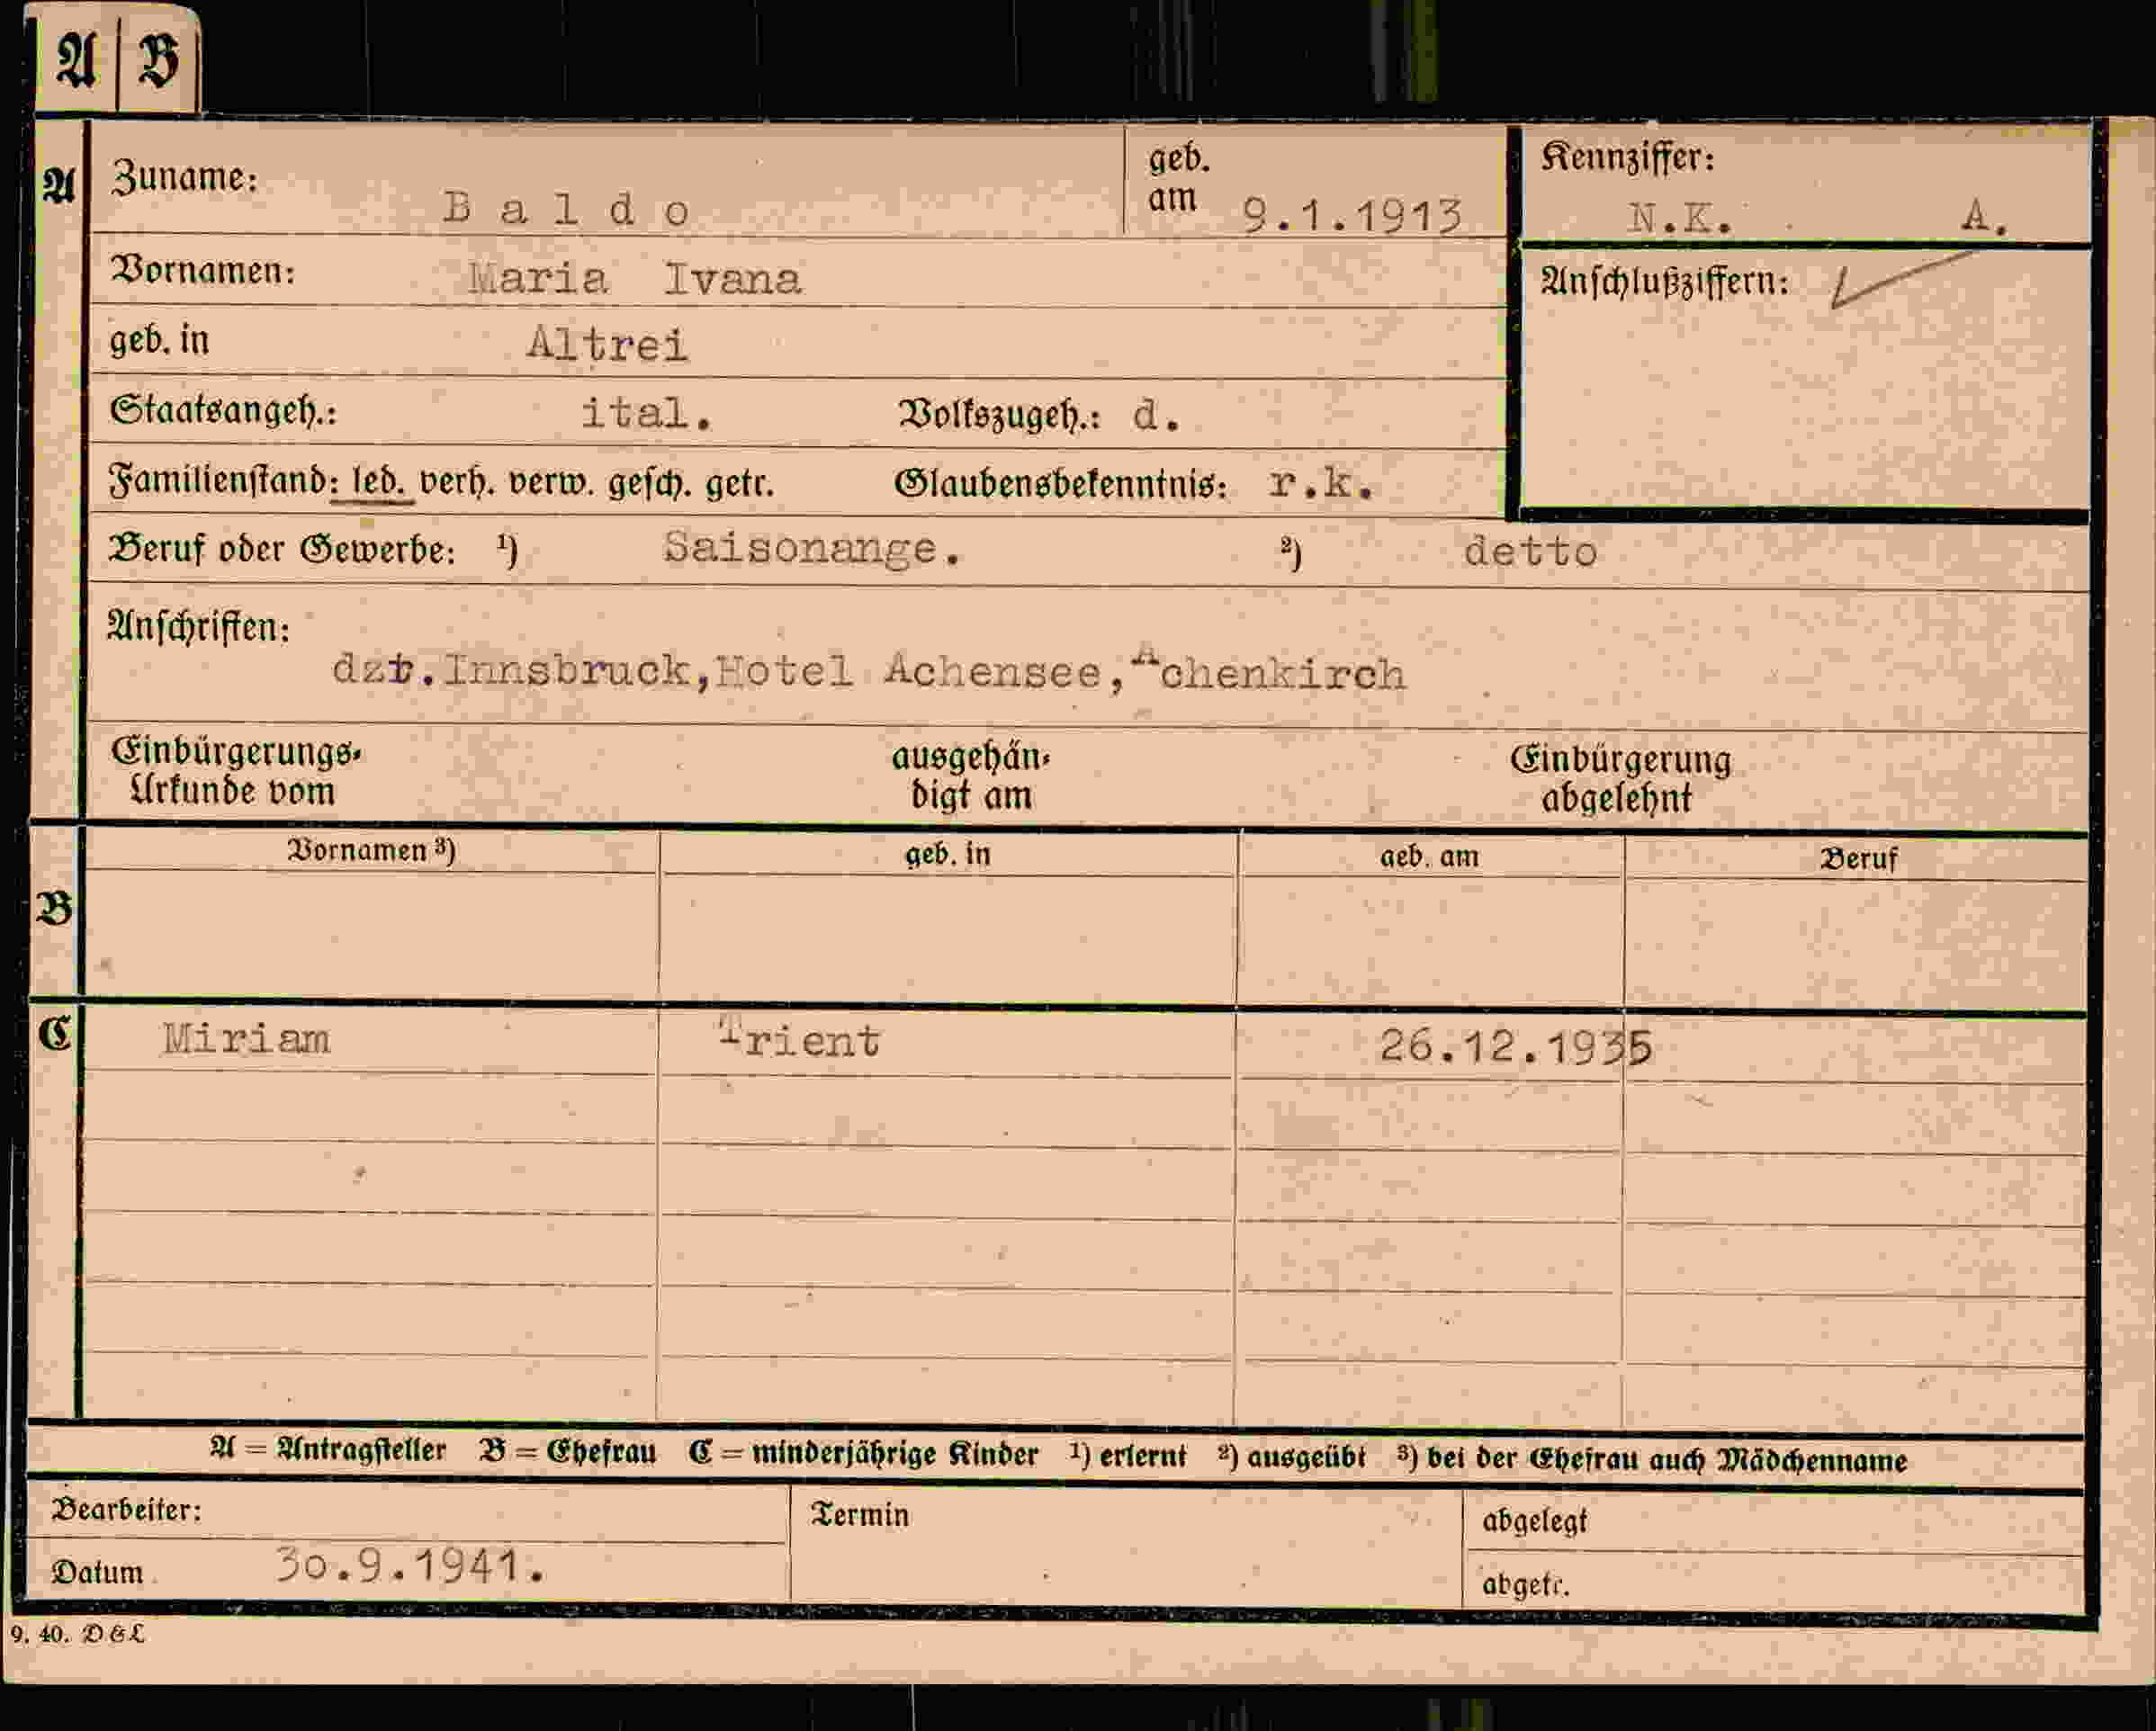 A B
A Zuname: Baldo geb. am 9.1.1913 Kennziffer: N.K. A.
Vornamen: Maria Ivana Anschlußziffern:
geb. in Altrei
Staatsangeh.: ital. Volkszugeh.: d.
Familienstand: led. verh. verw. gesch. getr. Glaubensbekenntnis: r.k.
Beruf oder Gewerbe: ¹) Saisonange. ²) detto
Anschriften:
dzt.Innsbruck,Hotel Achensee,Achenkirch
Einbürgerungs- ausgehän- Einbürgerung
Urkunde vom digt am abgelehnt
Vornamen ³) geb. in geb. am Beruf
B
C Miriam Trient 26.12.1935
A = Antragsteller B = Ehefrau C = minderjährige Kinder ¹) erlernt ²) ausgeübt ³) bei der Ehefrau auch Mädchenname
Bearbeiter: Termin abgelegt
Datum 30.9.1941. abgetr.
9. 40. D&L